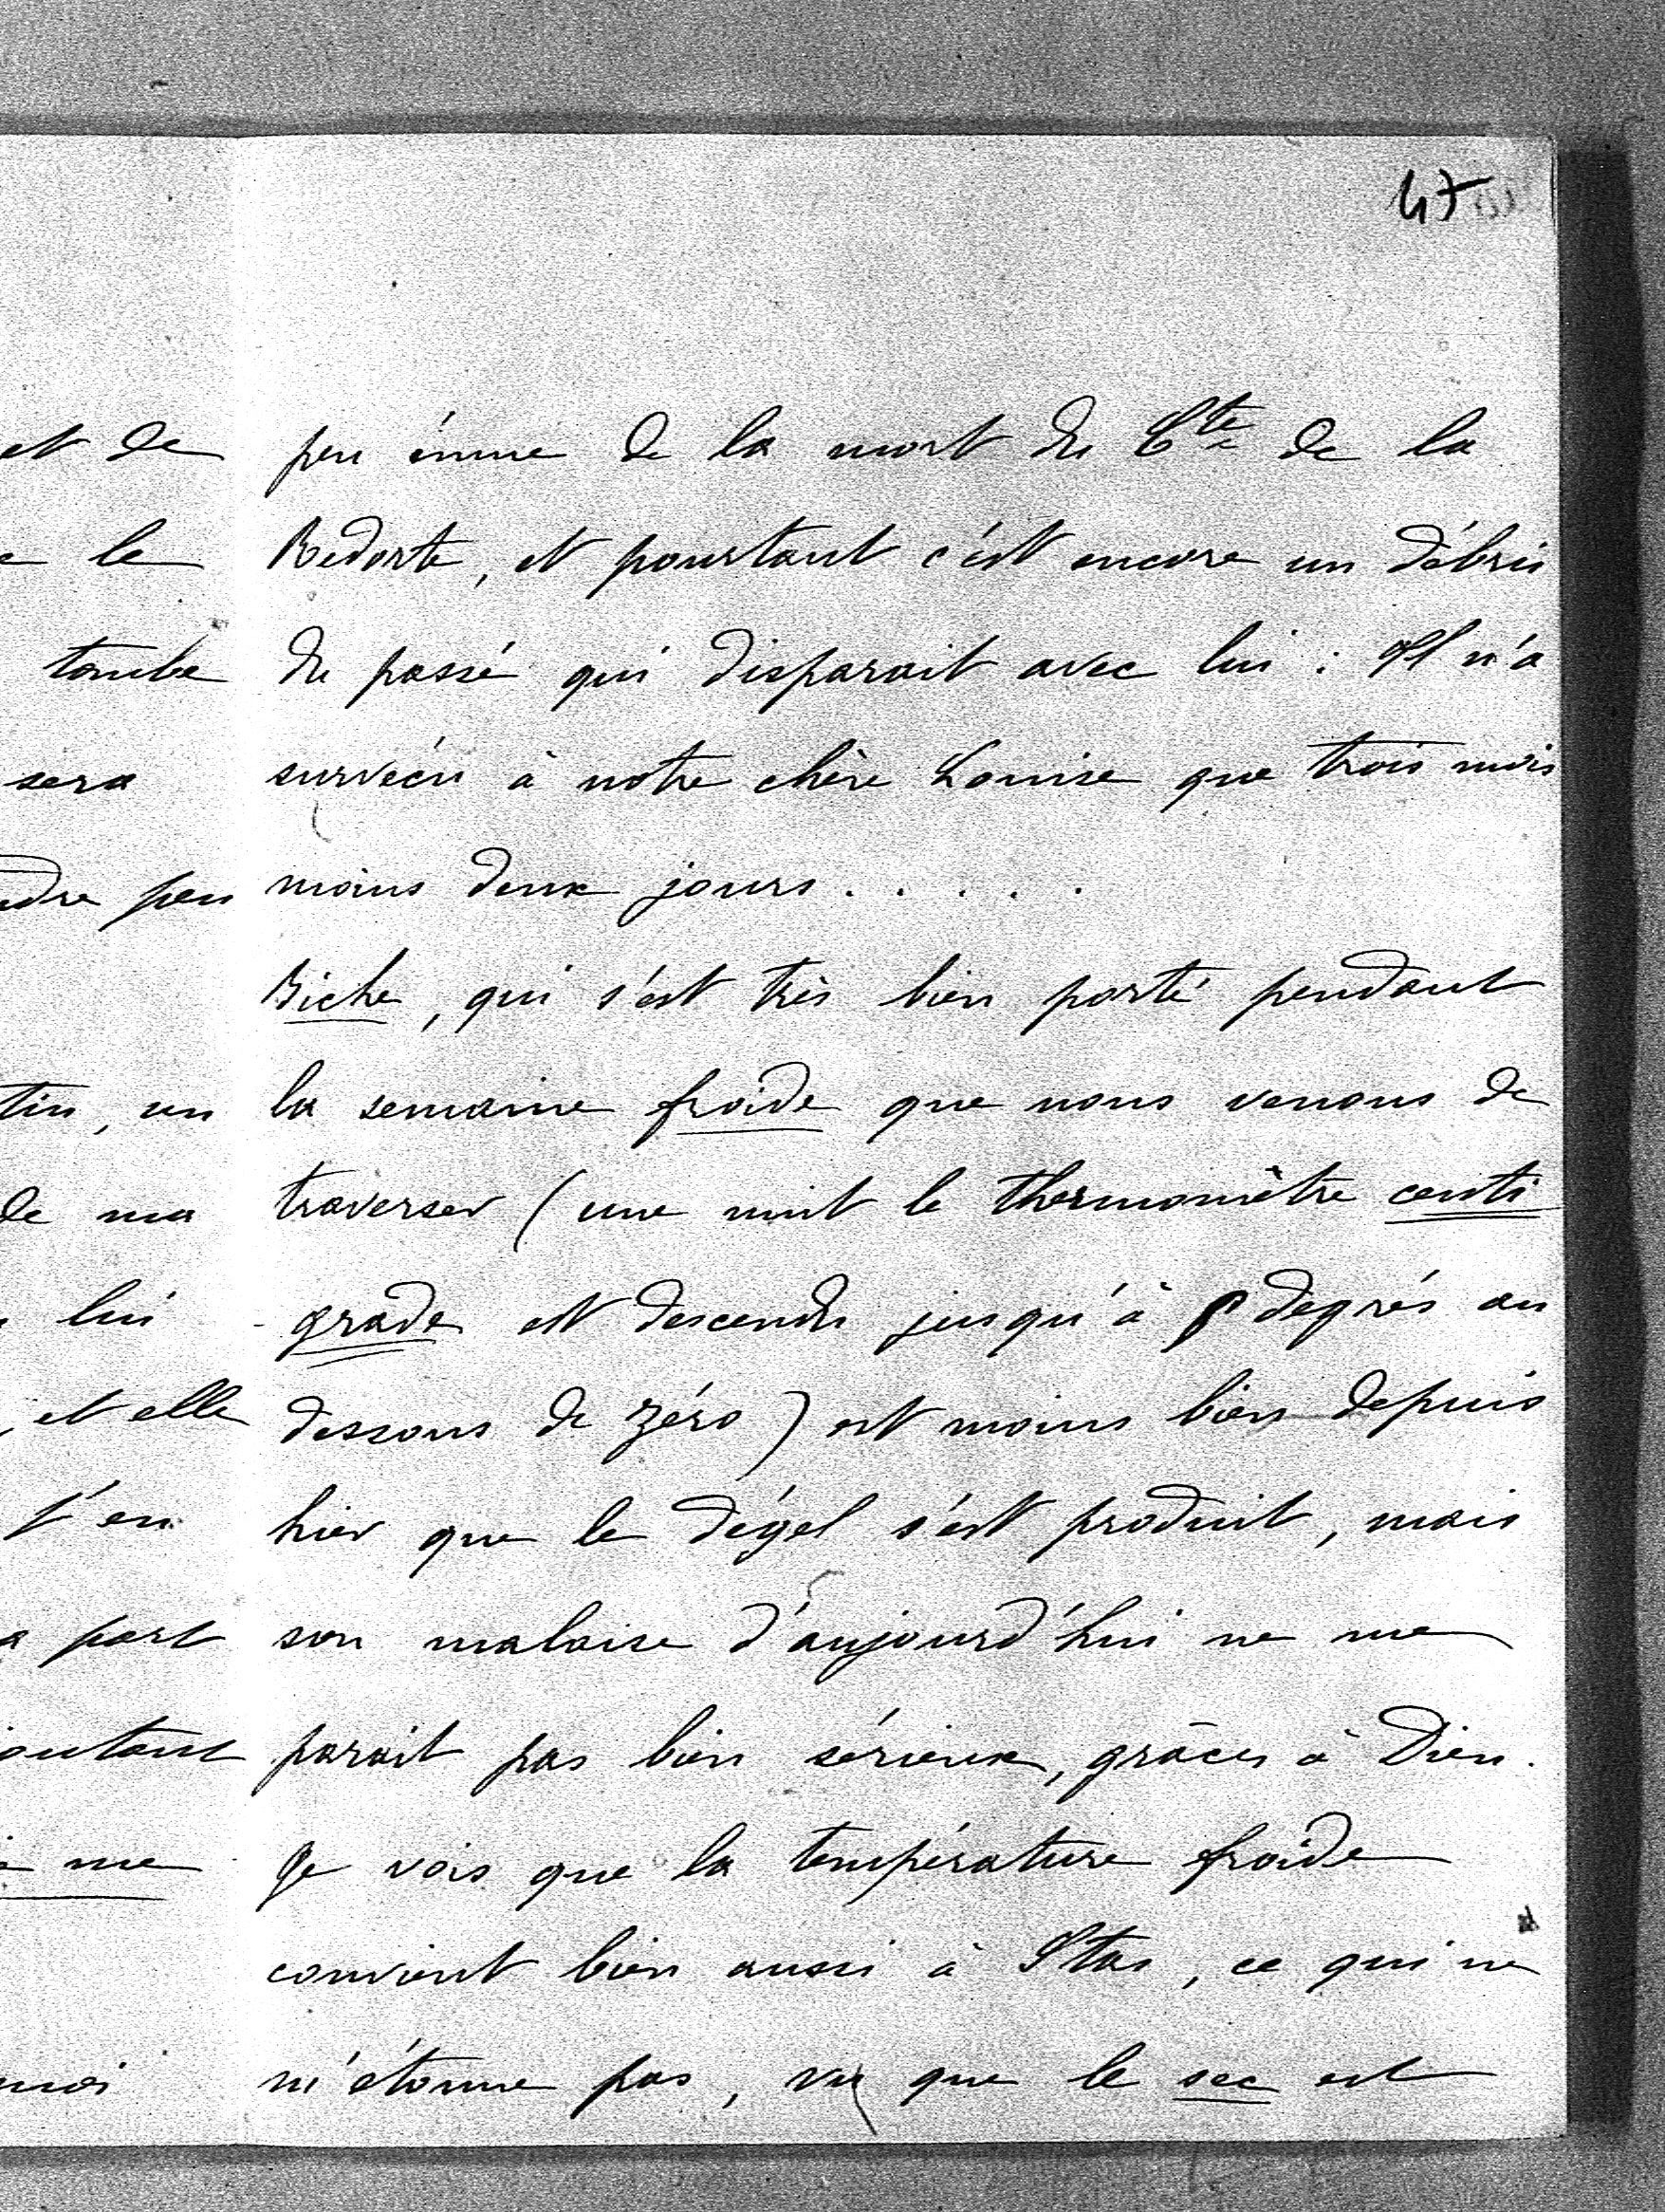 47
et de
le
tombe
sera
peu
tin, un
de ma
lui
, et elle
t'en
part
me
peu émue de la mort du Cte de la
Redorte, et pourtant c'est encore un débris
du passé qui disparait avec lui : Il n'a
survécu à notre chère Louise que trois mois
moins deux jours . . . . .
Biche, qui s'est très bien porté pendant
la semaine froide que nous venons de
traverser (une nuit le thermomètre centi
-grade est descendu jusqu'à 8 degrés au
dessous de zéro) est moins bien depuis
hier que le dégel s'est produit, mais
son malaise d'aujourd'hui ne me
parait pas bien sérieux, grâces à Dieu.
Je vois que la température froide
convient bien aussi à Stas, ce qui ne
m'étonne pas, vu que le sec est